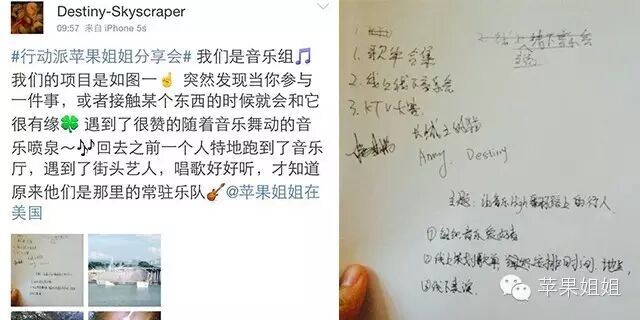 Destiny-Skyscraper
09:57 来自 iPhone 5s
#行动派苹果姐姐分享会# 我们是音乐组🎵
我们的项目是如图一☝ 突然发现当你参与
一件事，或者接触某个东西的时候就会和它
很有缘🍀 遇到了很赞的随着音乐舞动的音
乐喷泉～🎶回去之前一个人特地跑到了音乐
厅，遇到了街头艺人，唱歌好好听，才知道
原来他们是那里的常驻乐队🎸@苹果姐姐在
美国
1.
1. 歌单合集
2. 线上线下音乐会
3. KTV大赛
Army. Destiny
主题：让音乐
① 组织音乐爱好者
② 线上策划歌单，时间，地点，
③ 线下表演
苹果姐姐